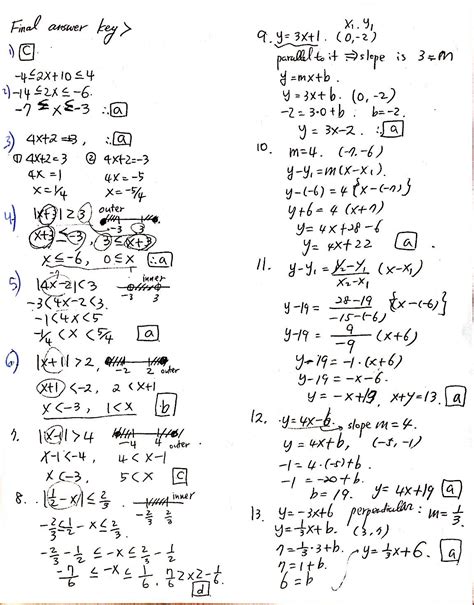 Final answer key >
1) C
-4≤2x+10≤4
2) -14≤2x≤-6.
-7 ≤ x ≤ -3 ∴ a
3) 4x+2=3, ∴ a
① 4x+2=3 ② 4x+2=-3
4x=1 4x=-5
x=1/4 x=-5/4
4) |x+3|≥3 outer
-3 3
x+3≤-3, 3≤x+3
x≤-6, 0≤x ∴ a
5) |4x-2|<3 inner
-3 3
-3<4x-2<3
-1<4x<5
-1/4<x<5/4 a
6) |x+1|>2, -2 2 outer
x+1<-2, 2<x+1
x<-3, 1<x b
7. |x-1|>4 -4 4 outer
x-1<-4, 4<x-1
x<-3, 5<x C
8. |1/2-x|≤2/3. inner
-2/3 2/3
-2/3≤1/2-x≤2/3.
-2/3-1/2≤-x≤2/3-1/2
-7/6≤-x≤1/6, 7/6≥x≥-1/6
d
x₁, y₁
9. y=3x+1. (0,-2)
parallel to it ⇒ slope is 3=m
y=mx+b.
y=3x+b. (0,-2)
-2=3·0+b. b=-2.
y=3x-2. ∴ a
10. m=4. (-7,-6)
y-y₁=m(x-x₁).
y-(-6)=4{x-(-7)}
y+6=4(x+7)
y=4x+28-6
y=4x+22 a
11. y-y₁=(y₂-y₁)/(x₂-x₁) (x-x₁)
y-19=(28-19)/(-15-(-6)) {x-(-6)}
y-19=9/-9 (x+6)
y-19=-1·(x+6)
y-19=-x-6.
y=-x+13, x+y=13. a
12. y=4x-6 slope m=4.
y=4x+b, (-5,-1)
-1=4·(-5)+b
-1=-20+b
b=19. y=4x+19 a
13. y=-3x+6 perpendicular: m=1/3.
y=1/3x+b. (3,7)
7=1/3·3+b. y=1/3x+6. a
7=1+b.
6=b